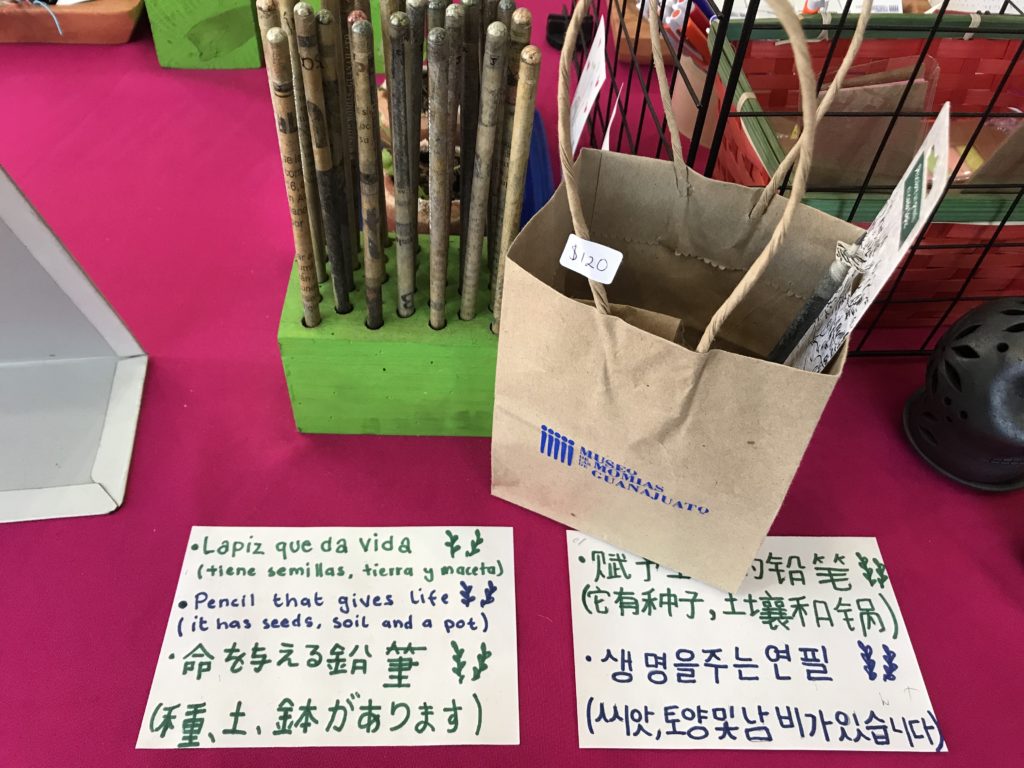 $120
MUSEO
MOMIAS
GUANAJUATO
•Lapiz que da vida
(tiene semillas, tierra y maceta)
• Pencil that gives life
(it has seeds, soil and a pot)
・命を与える鉛筆
(種、土、鉢があります)
・赋予 的铅笔
(它有种子,土壤和锅)
・생명을주는연필
(씨앗,토양및남비가있습니다)